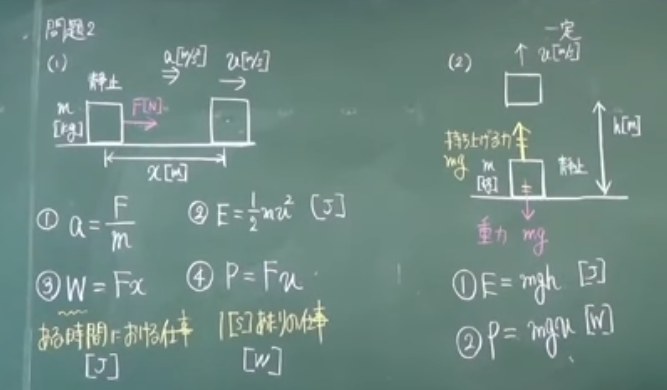 問題2
(1)
a[m/s²]
u[m/s]
静止
F[N]
m
[kg]
x[m]
① a = F/m
② E = 1/2 mu² [J]
③ W = Fx
④ P = Fu
ある時間における仕事
[J]
1[S]あたりの仕事
[W]
(2)
一定
u[m/s]
持ち上げる力
mg
m
[kg]
静止
h[m]
重力 mg
① E = mgh [J]
② P = mgu [W]